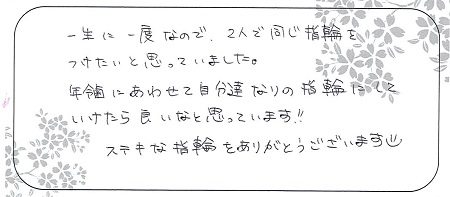 一生に一度なので、2人で同じ指輪を
つけたいと思っていました。
年齢にあわせて自分達なりの指輪にして
いけたら良いなと思っています!!
ステキな指輪をありがとうございます